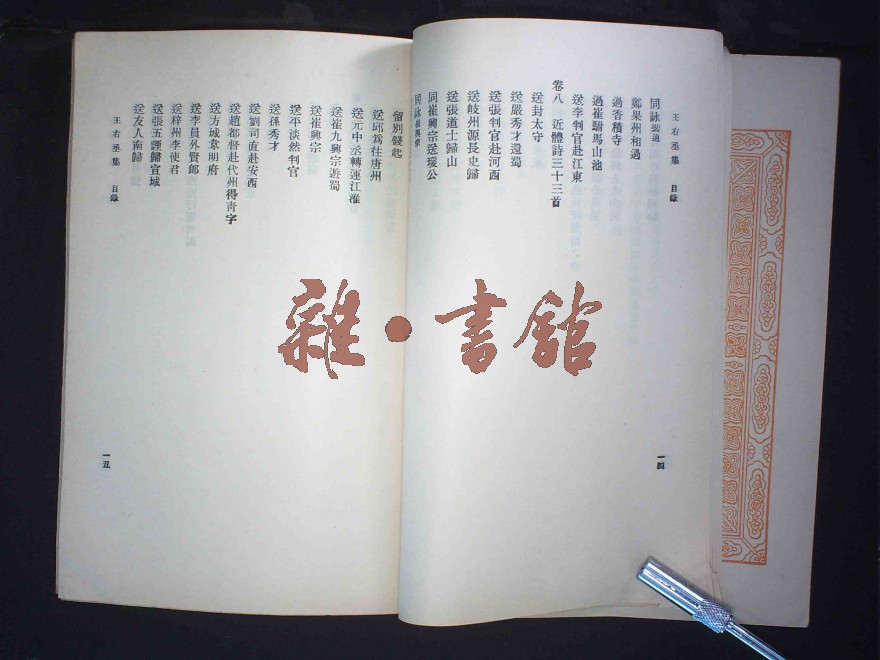 王右丞集 目錄
同詠裴迪
鄭果州相過
過香積寺
過崔駙馬山池
送李判官赴江東
卷八 近體詩三十三首
送封太守
送嚴秀才還蜀
送張判官赴河西
送岐州源長史歸
送張道士歸山
同崔興宗送瑗公
同詠崔興宗
一四
留別錢起
送邱爲往唐州
送元中丞轉運江淮
送崔九興宗遊蜀
送崔興宗
送平淡然判官
送孫秀才
送劉司直赴安西
送趙都督赴代州得靑字
送方城韋明府
送李員外賢郎
送梓州李使君
送張五諲歸宣城
送友人南歸
王右丞集 目錄
一五
雜·書館